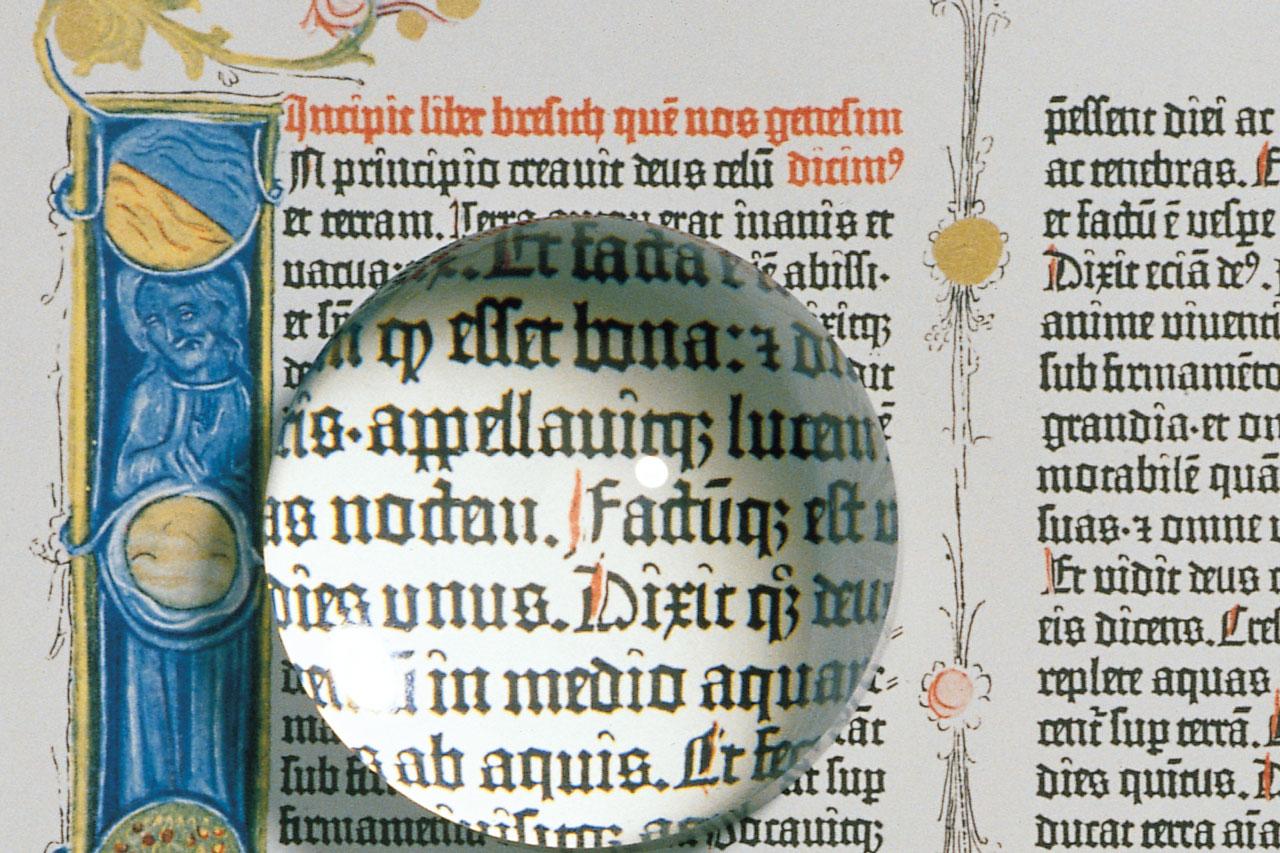 Incipit liber bresith quē nos genesim
In principio creauit deus celū dicimꝰ
et terram. Terra autem erat inanis et
abissi·
et
Et facta e
qꝫ esset bona: ⁊ di
is·appellauitqꝫ lucem
as noctem. Factūqꝫ est v
dies vnus. Dixit qꝫ deu
in medio aqua
s ab aquis. Et fec
sub sup
p̄essent diei ac
ac tenebras.
et factū ē vespe
Dixit eciā deꝰ.
anime viuenti
sub firmamēto
grandia·et om
morabilē quā
suas·⁊ omne v
Et vidit deus
eis dicens. Cres
replete aquas
cent̄ sup terrā.
dies quintus.
ducat terra aīa